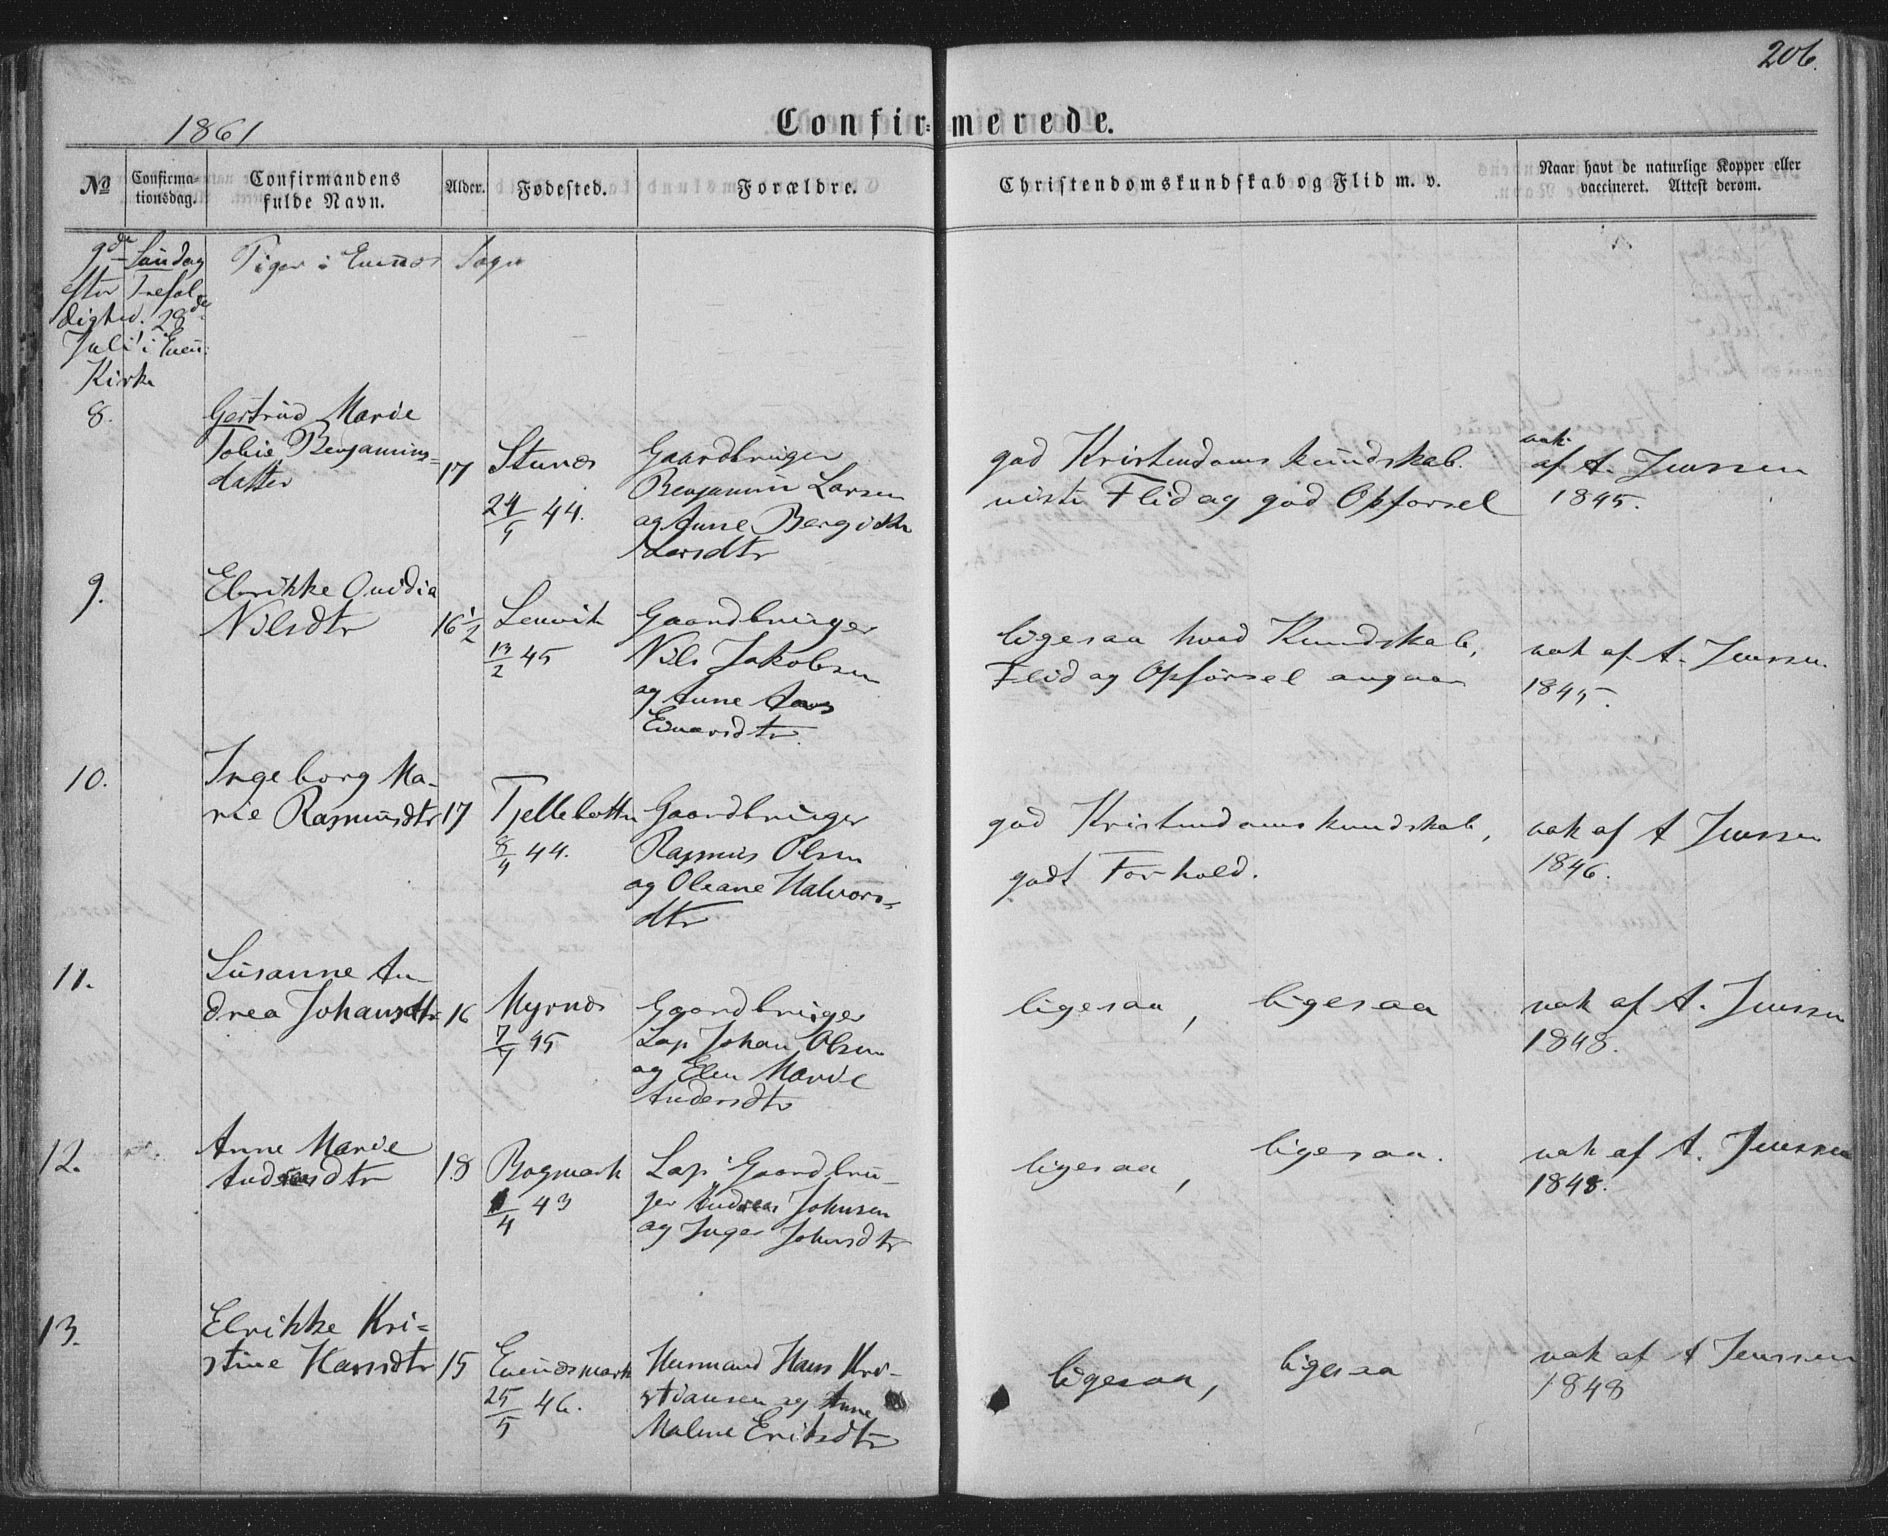 206.
1861
Confir= merede.
No
Confirma-
tionsdag.
Confirmandens
fulde Navn.
Alder.
Fødested.
Forældre.
Christendomskundskab og Flid m. v.
Naar havt de naturlige Kopper eller
vaccineret. Attest derom.
9de Søndag
efter Trefol
dighed. 28de
Juli i Evenes
Kirke
Piger i Evenæs Sogn
8.
Gertrud Marie
Tobie Benjamins=
datter
17
Stunæs
24/5 44.
Gaardbruger
Benjamin Larsen
og Anne Bergitte
Larsdtr
god Kristendomskundskab.
viste Flid og god Opførsel
vak.
af A. Jenssen
1845.
9.
Elrikke Ovidia
Nilsdtr
16 1/2
Lenvik
13/2 45
Gaardbruger
Nils Jakobsen
og Anne
Edvardsdtr.
ligesaa hvad Kundskab,
Flid og Opførsel angaar
vak af A. Jenssen.
1845.
10.
Ingeborg Ma-
rie Rasmusdtr
17
Tjellebotten
8/4 44.
Gaardbruger
Rasmus Olsen
og Oleane Halvors=
dtr
god Kristendomskundskab,
godt Forhold.
vak af A Jenssen
1846.
11.
Susanne An
drea Johansdtr
16
Myrnæs
7/4 45
Gaardbruger
Lap Johan Olsen
og Elen Marie
Andersdtr
ligesaa, ligesaa
vak af A. Jenssen
1848.
12.
Anne Marie
Andreasdtr
18
Bogmark
1/4 43
Lap, Gaardbru-
ger Andreas Johnsen
og Inger Johnsdtr
ligesaa, ligesaa.
vak af A. Jenssen
1848.
13.
Elrikke Kri=
stine Hansdtr
15
Evenæsmark
25/5 46.
Husmand Hans Kri-
stiansen og Anne
Malene Eriksdtr
ligesaa, ligesaa
vak af A Jenssen
1848